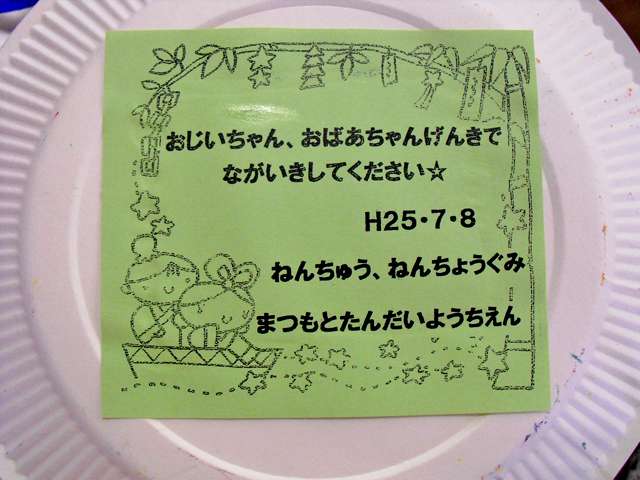 おじいちゃん、おばあちゃんげんきで
ながいきしてください☆
H25・7・8
ねんちゅう、ねんちょうぐみ
まつもとたんだいようちえん